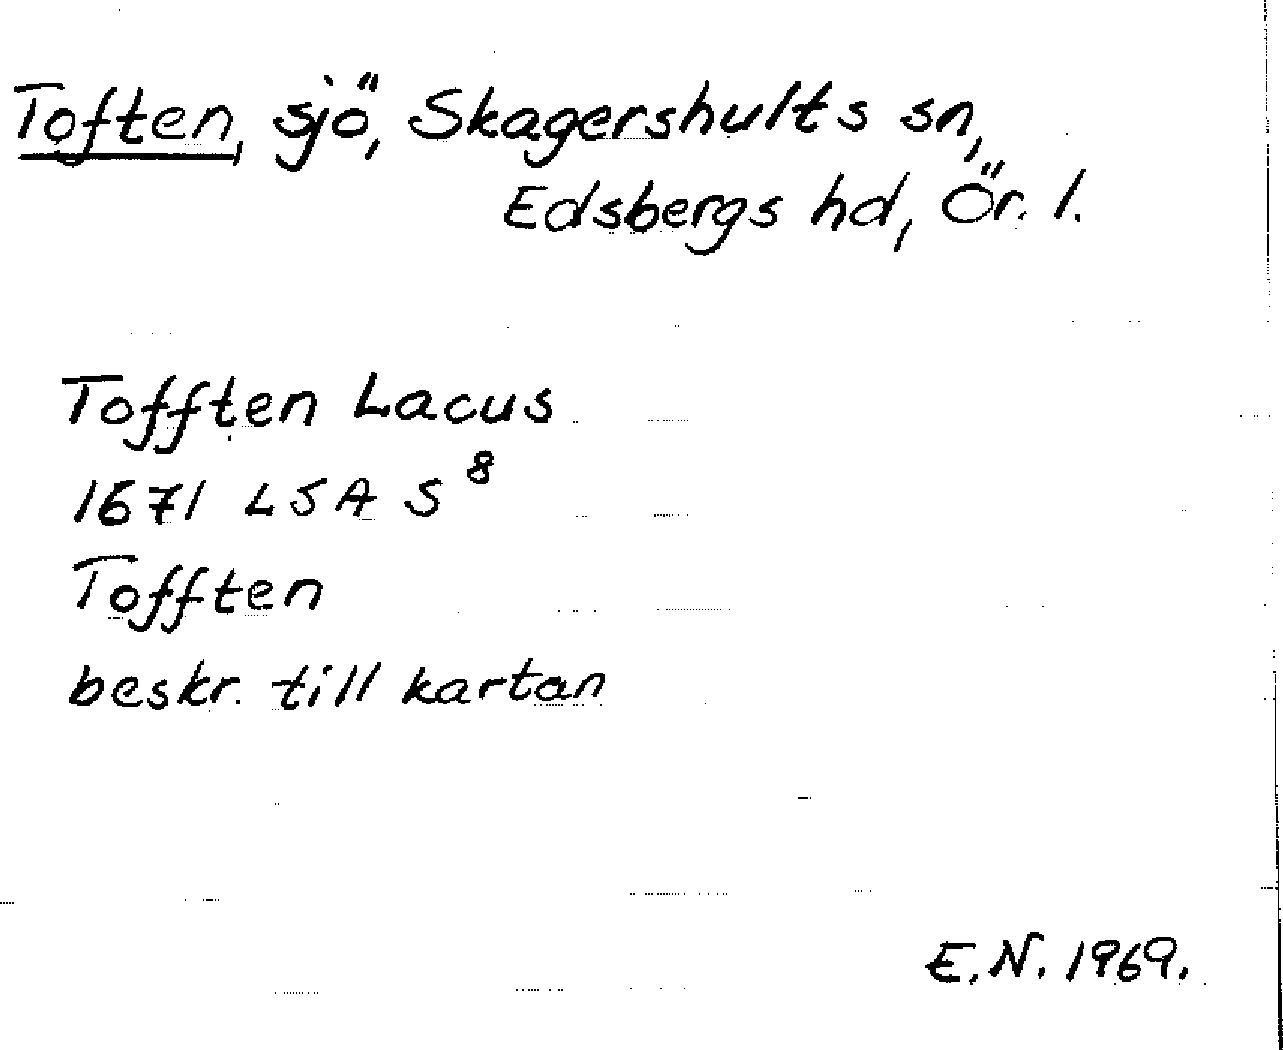 Toften, sjö, Skagershults sn,
Edsbergs hd, Ör. l.
Tofften Lacus
1671 LSA S⁸
Tofften
beskr. till kartan
E.N. 1969.